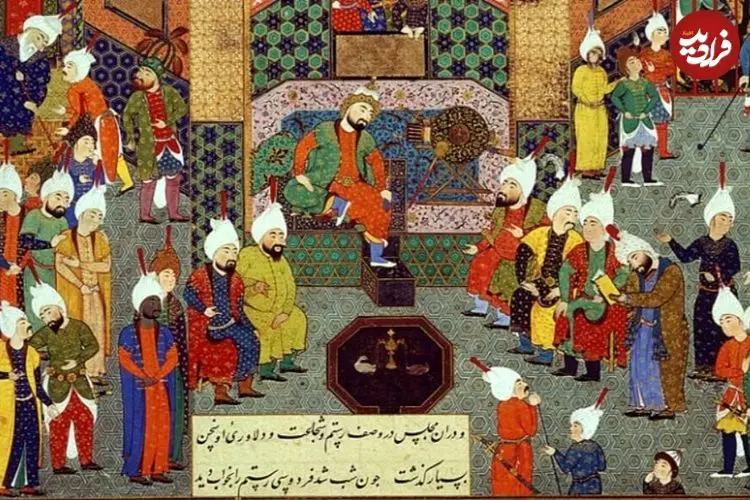 فرادید
و دران مجلس در وصف رستم و شجاعت و دلاوری او سخن
بسیار گذشت چون شب شد فردوسی رستم را بخواب دید